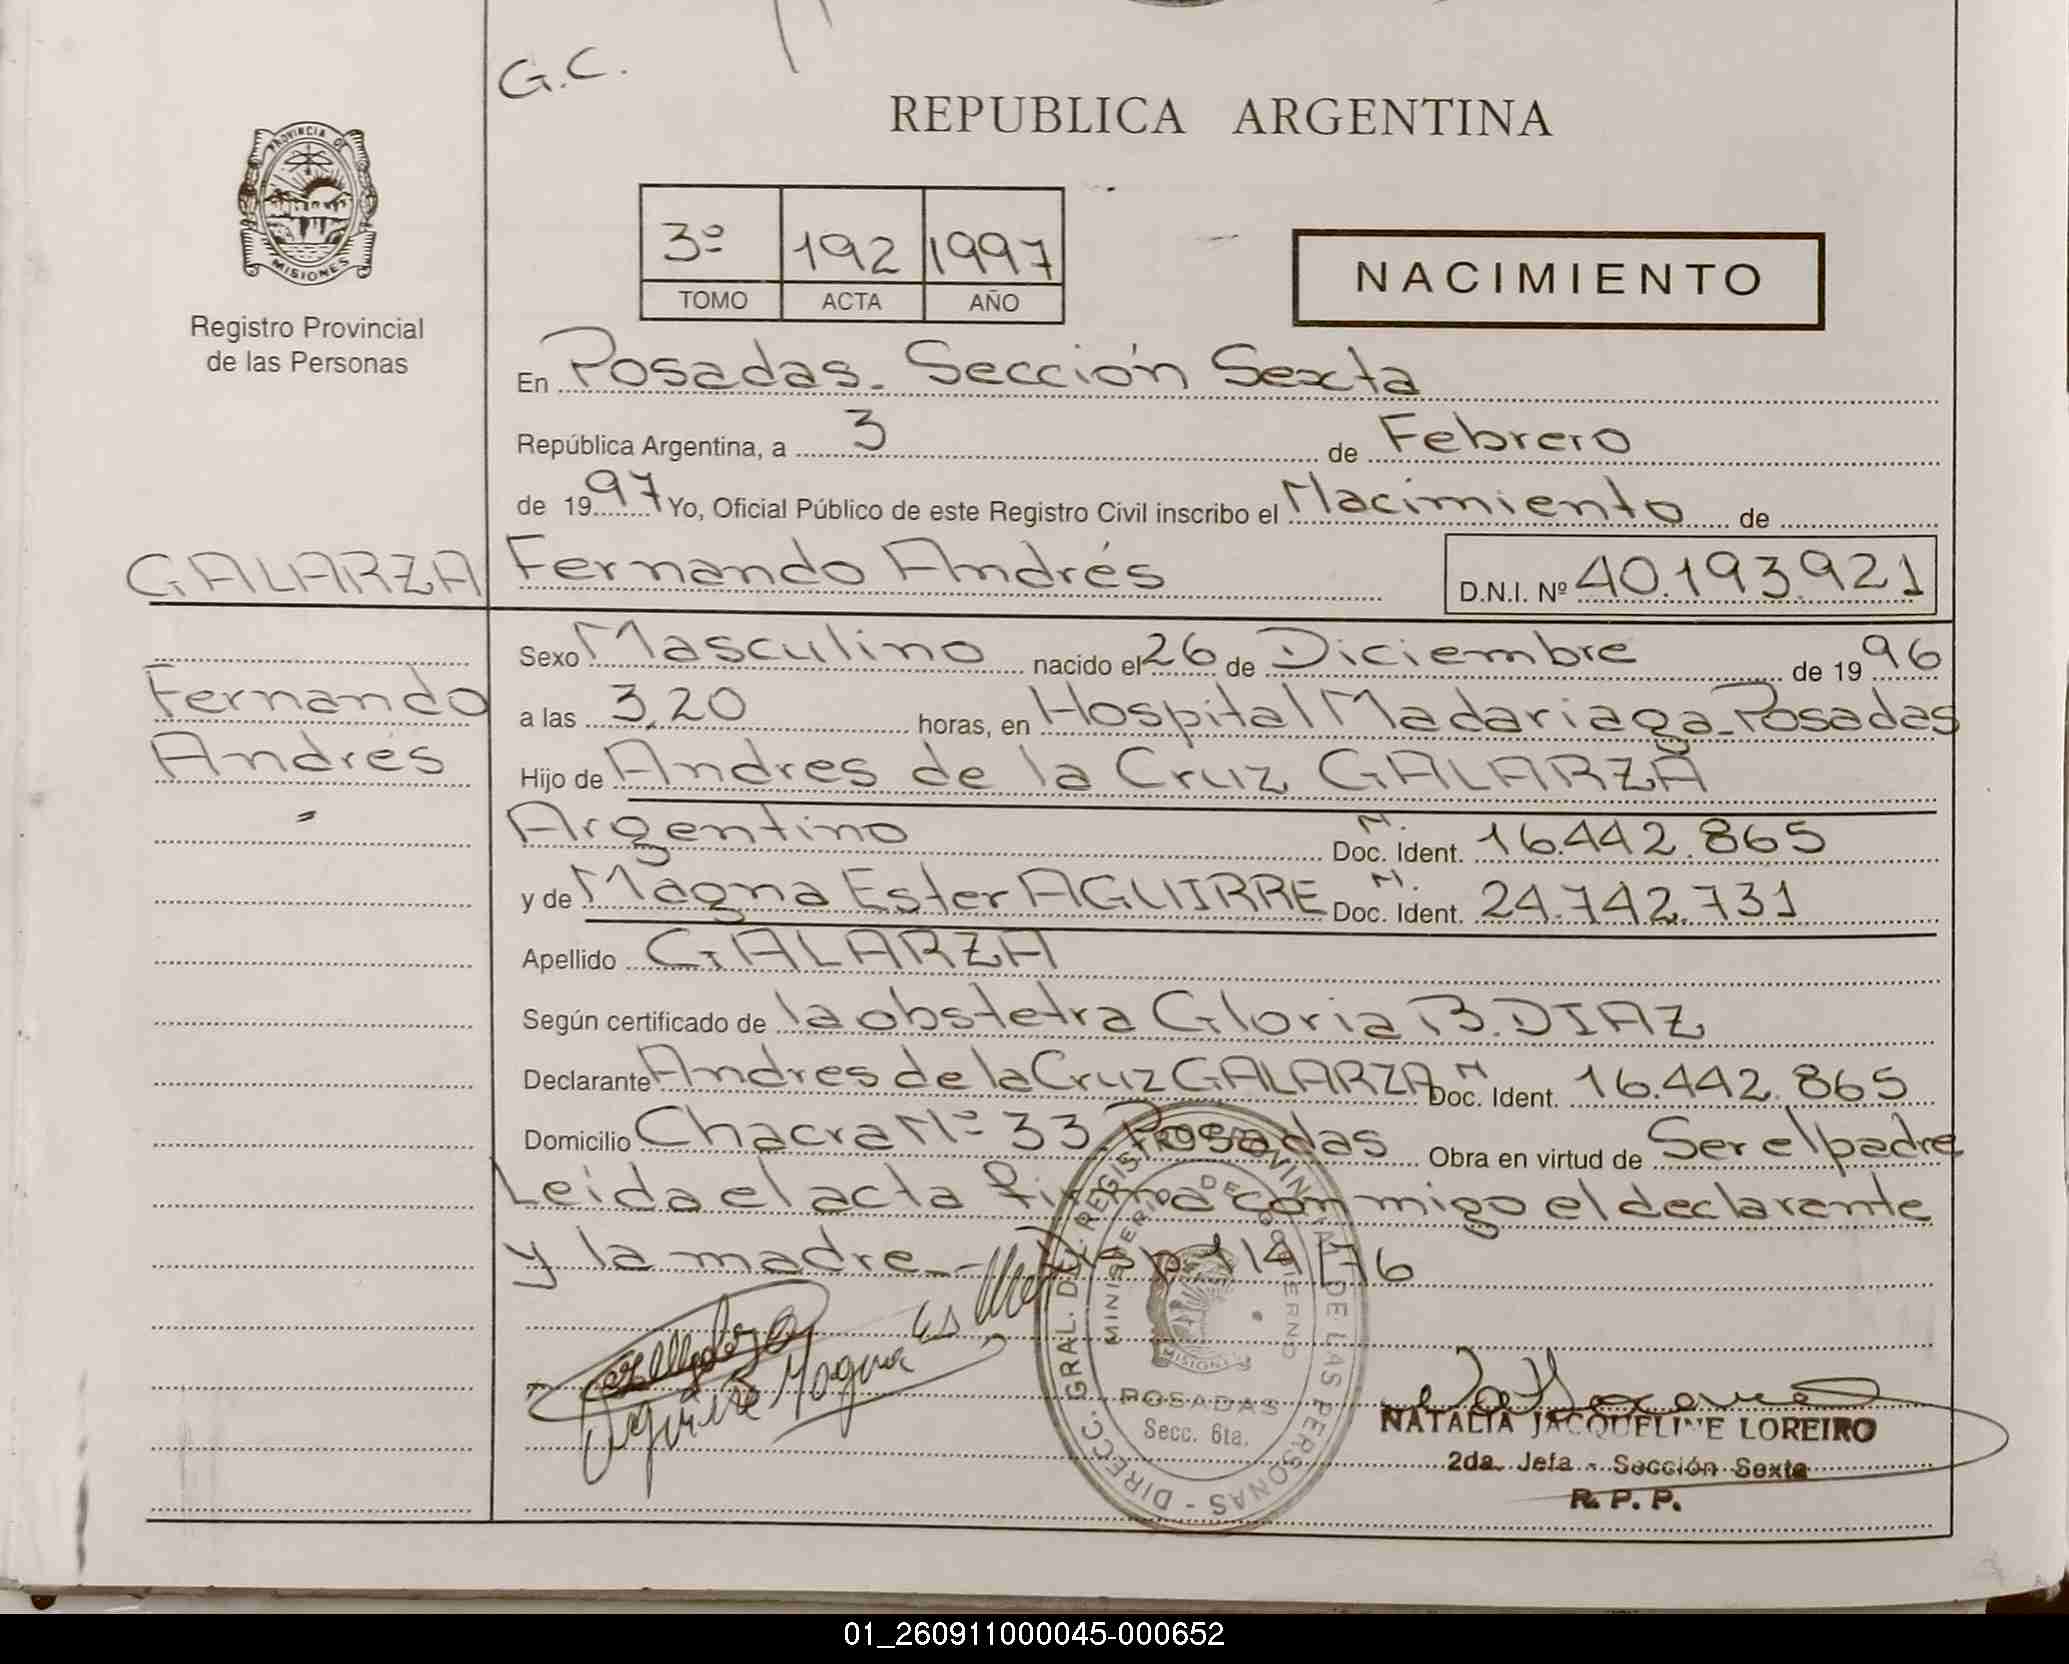 G.C.
REPUBLICA ARGENTINA
PROVINCIA DE MISIONES
Registro Provincial
de las Personas
3º 192 1997
TOMO ACTA AÑO
NACIMIENTO
En Posadas. Sección Sexta
República Argentina, a 3 de Febrero
de 1997 Yo, Oficial Público de este Registro Civil inscribo el Nacimiento de
GALARZA Fernando Andrés D.N.I. Nº 40.193.921
Sexo Masculino nacido el 26 de Diciembre de 1996
Fernando
a las 3,20 horas, en Hospital Madariaga_Posadas
Andrés
Hijo de Andres de la Cruz GALARZA
Argentino N. Doc. Ident. 16.442.865
y de Magna Ester AGUIRRE N. Doc. Ident. 24.742.731
Apellido GALARZA
Según certificado de la obstetra Gloria B. DIAZ
Declarante Andres de la Cruz GALARZA N Doc. Ident. 16.442.865
Domicilio Chacra Nº 33. Posadas Obra en virtud de Ser el padre
Leida el acta firma conmigo el declarante
y la madre_- Disp 114/76
Aguirre Magna Es
DIRECC. GRAL. DEL REGISTRO PROVINCIAL DE LAS PERSONAS
MINISTERIO DE GOBIERNO
MISIONES
POSADAS
Secc. 6ta.
NATALIA JACQUELINE LOREIRO
2da. Jefa - Sección Sexta
R. P. P.
01_260911000045-000652